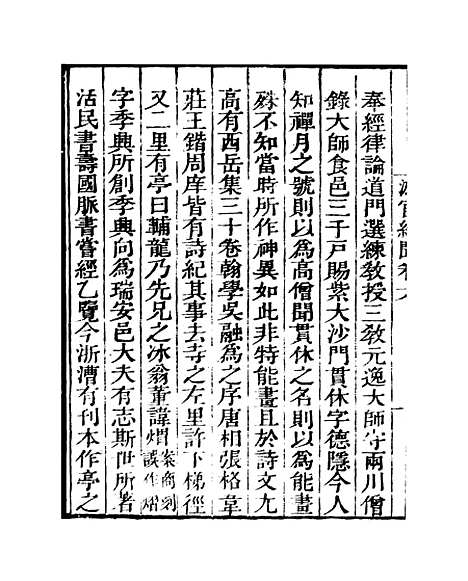 奉經律論道門選練教授三教元逸大師守兩川僧
錄大師食邑三千戸賜紫大沙門貫休字德隱今人
知禪月之號則以為高僧聞貫休之名則以為能畫
殊不知當時所作神異如此非特能畫且於詩文尤
高有西岳集三十卷翰學吳融為之序唐相張格韋
莊王鍇周庠皆有詩紀其事去寺之左里許下梯徑
又二里有亭曰輔龍乃先兄之冰翁董諱熠案商刻誤作熠
字季興所創季興向為瑞安邑大夫有志斯世所著
活民書壽國脈書嘗經乙覽今浙漕有刊本作亭之